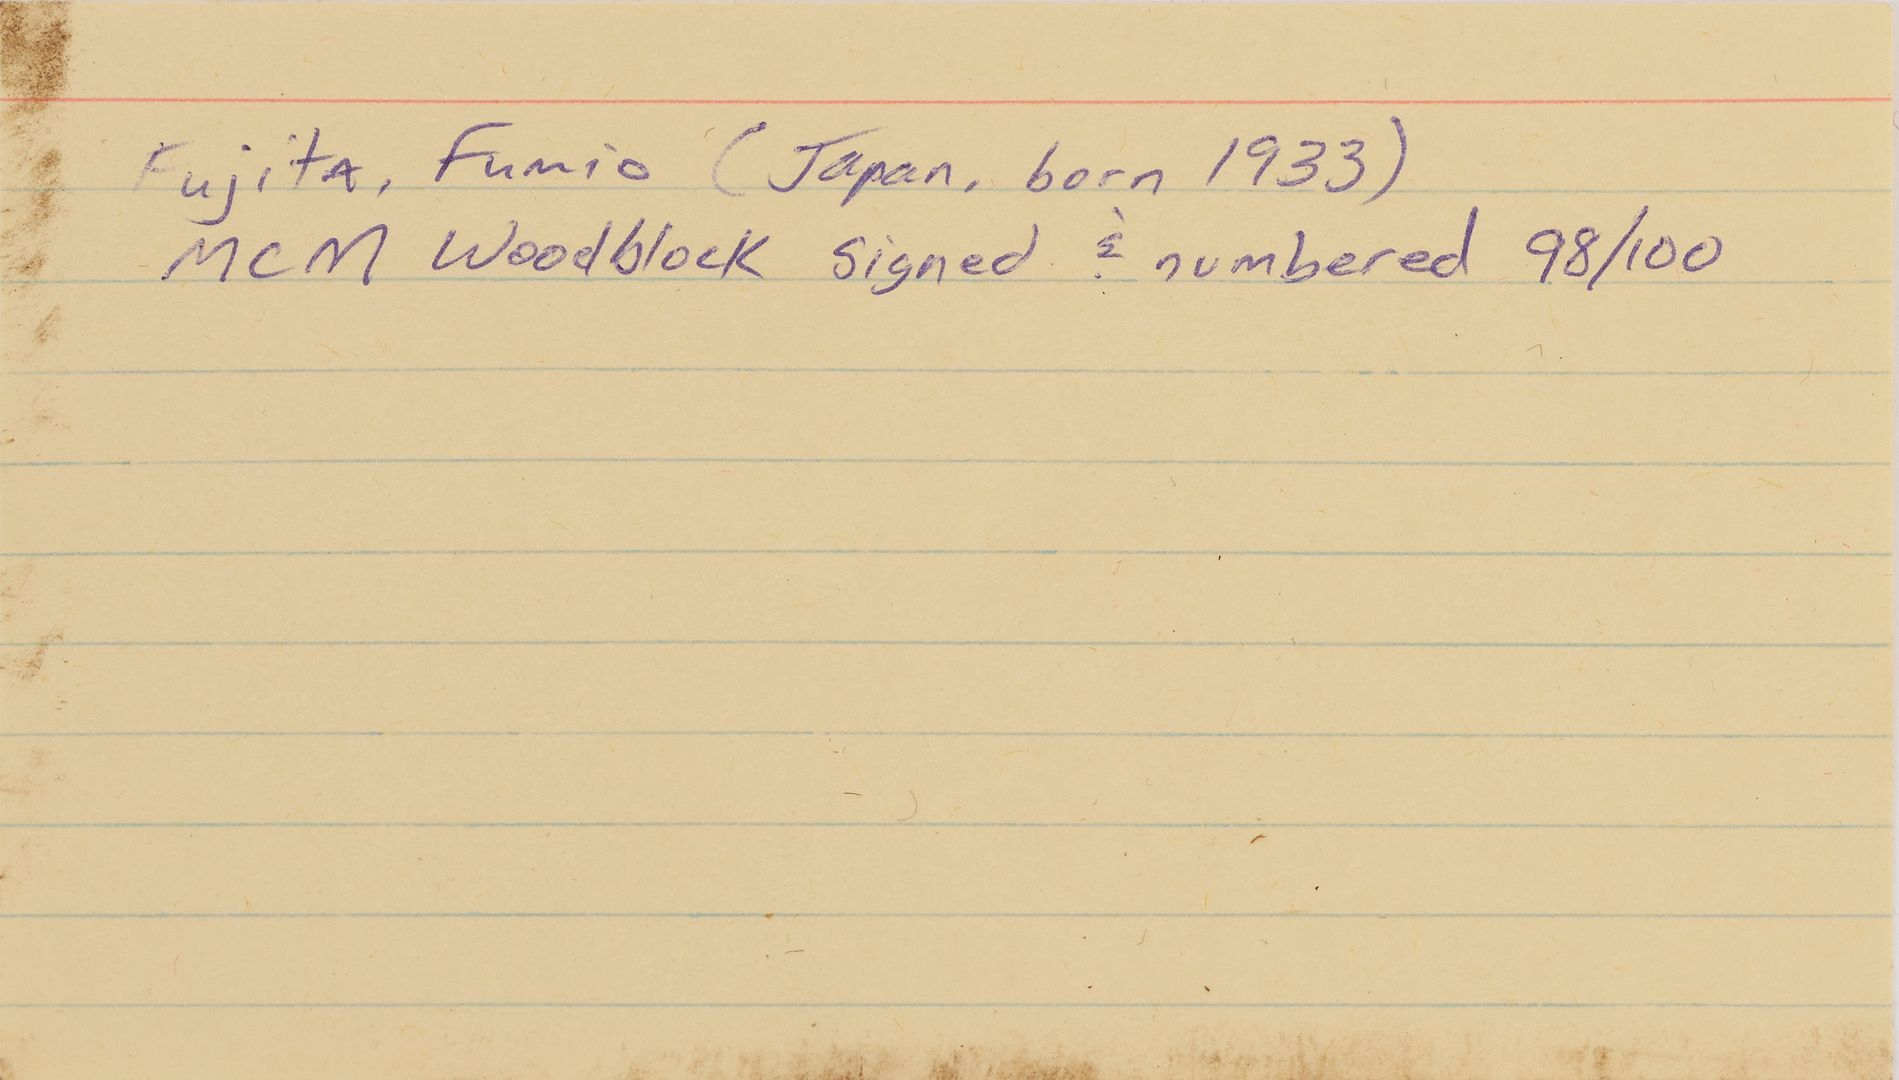 Fujita, Fumio (Japan, born 1933)
MCM Woodblock signed & numbered 98/100